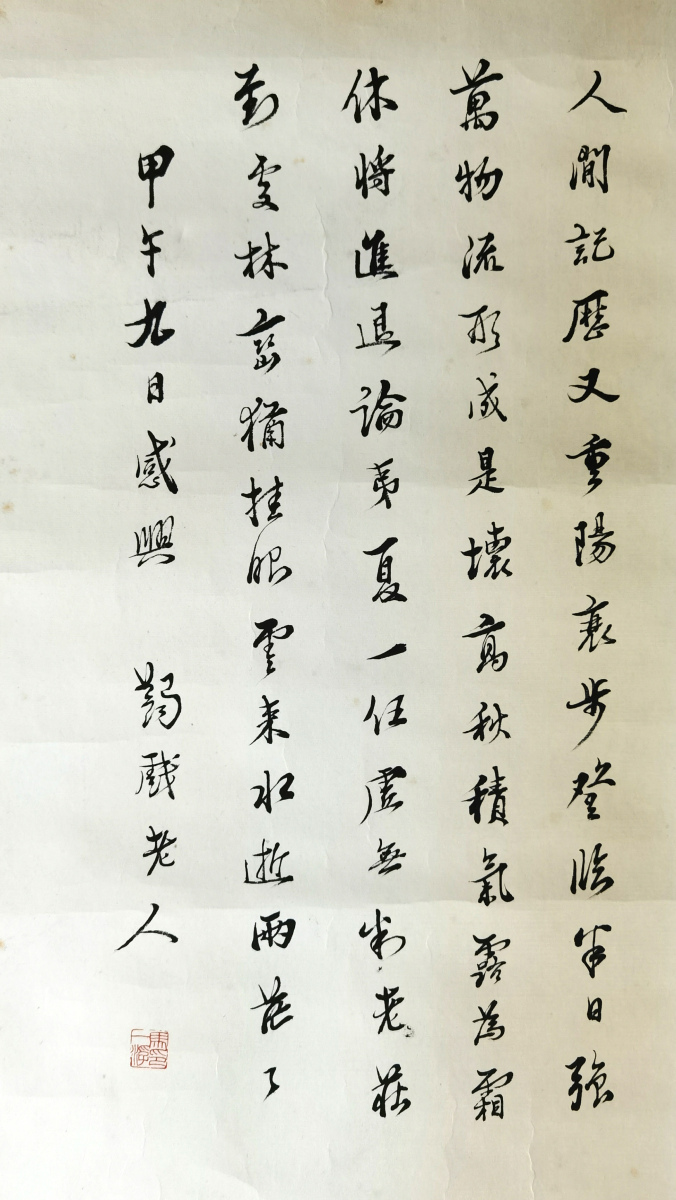 人間記歷又重陽衰步登臨半日強
萬物流形成是壞高秋積氣露為霜
休將進退論夷夏一任虛無判老莊
對處林巒猶挂眼雲來水逝兩茫々
甲午九日感興 蠲戲老人